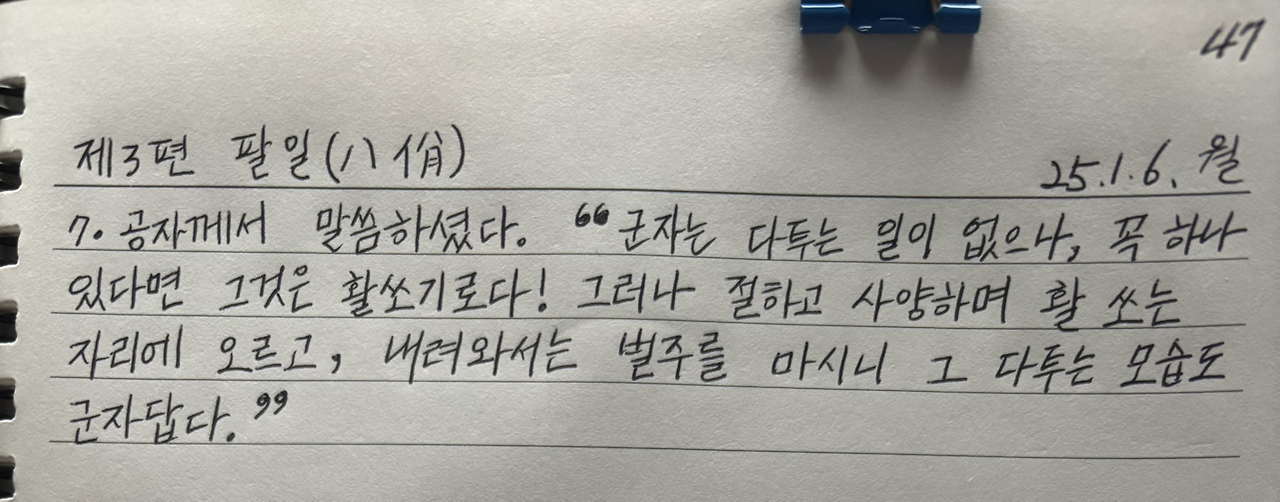 47
제3편 팔일(八佾) 25.1.6. 월
7. 공자께서 말씀하셨다. "군자는 다투는 일이 없으나, 꼭 하나
있다면 그것은 활쏘기로다! 그러나 절하고 사양하며 활 쏘는
자리에 오르고, 내려와서는 벌주를 마시니 그 다투는 모습도
군자답다."